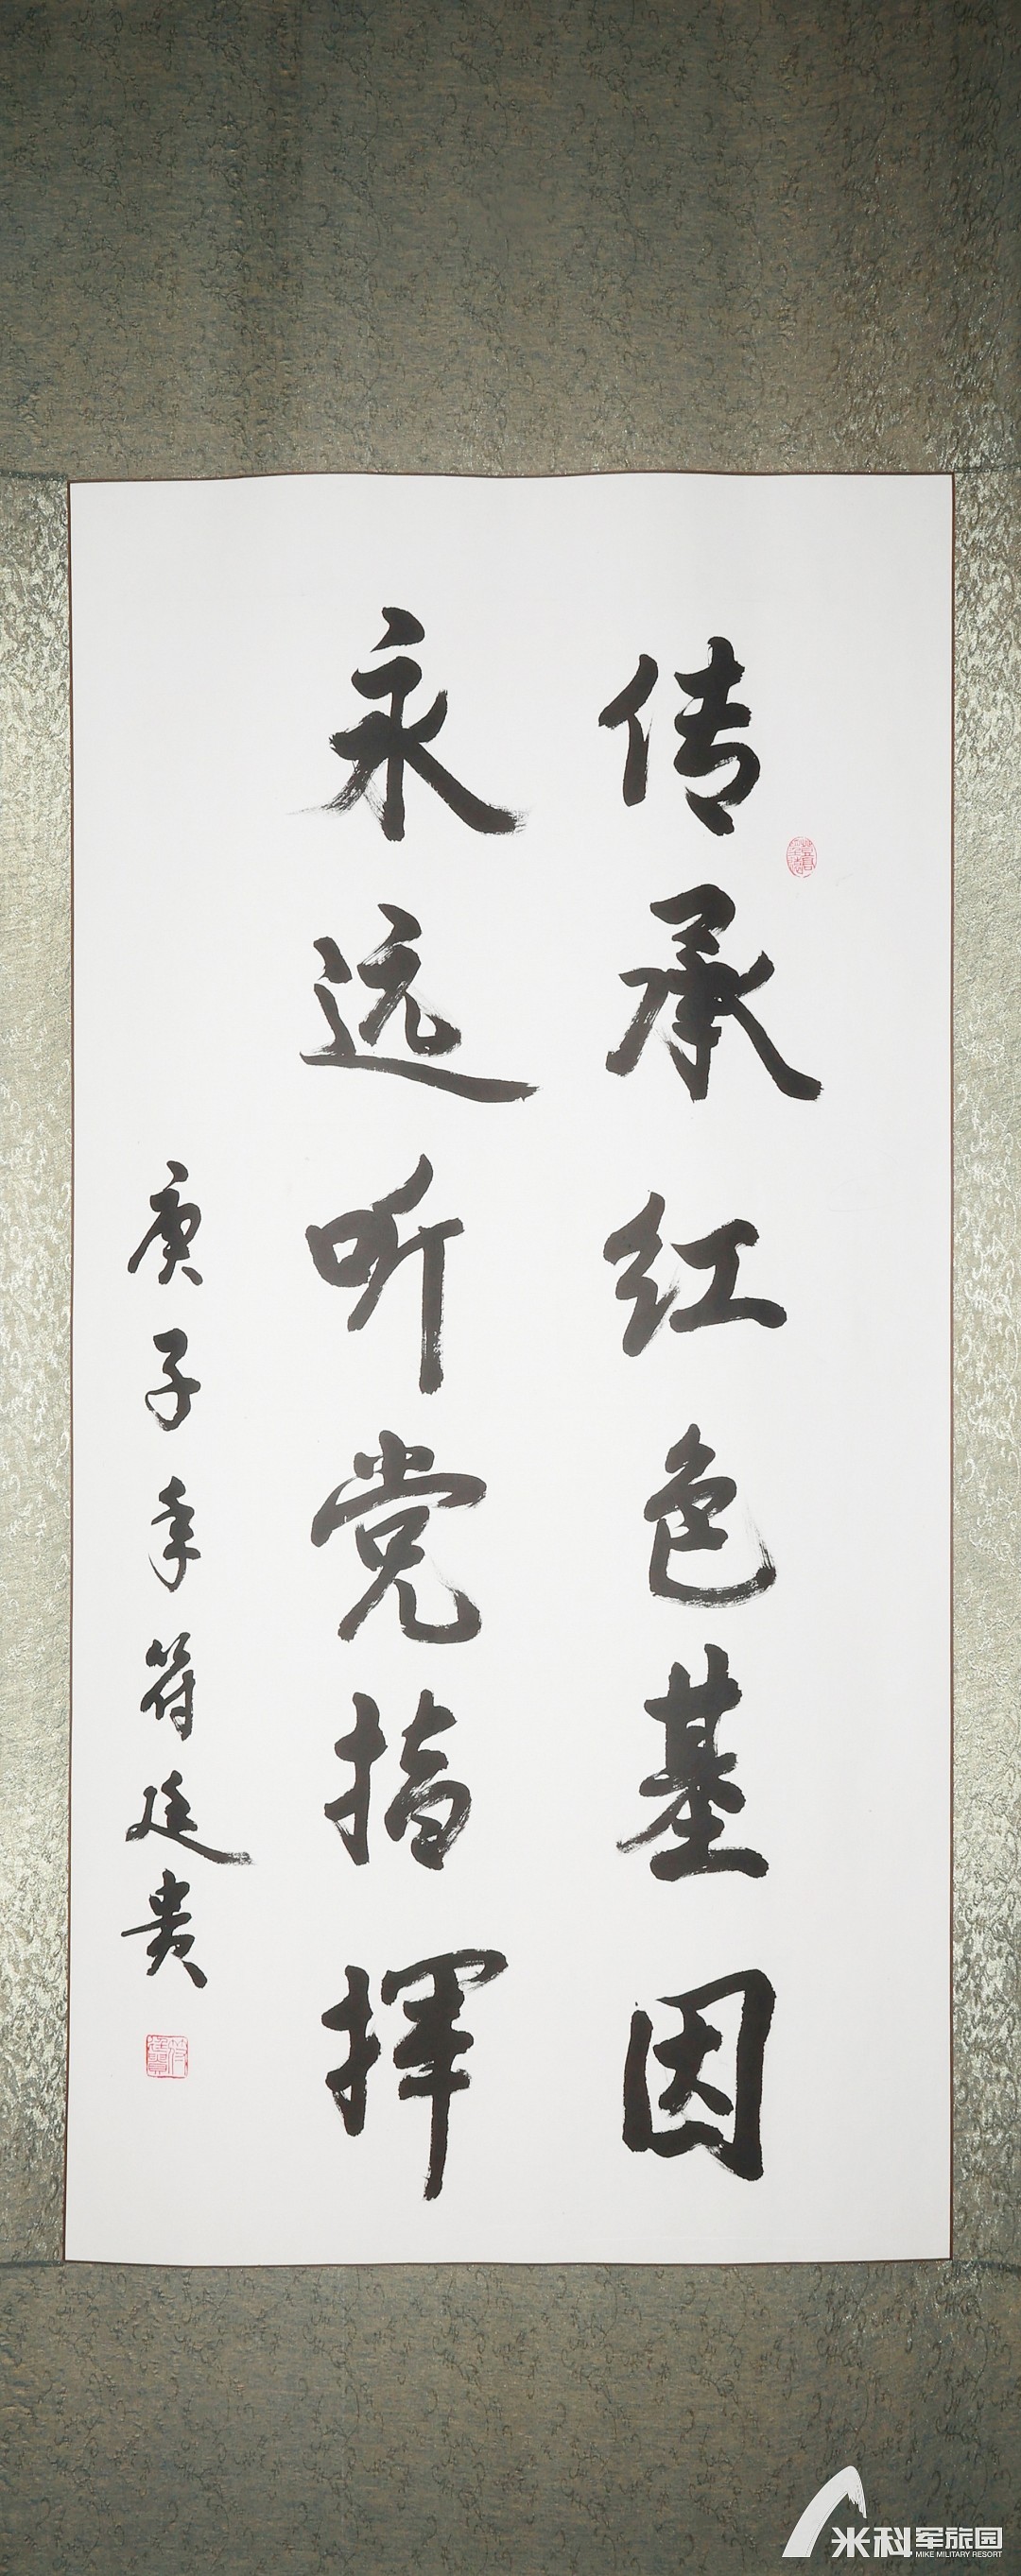 传承红色基因
永远听党指挥
庚子年符廷贵
米科军旅园
MIKE MILITARY RESORT